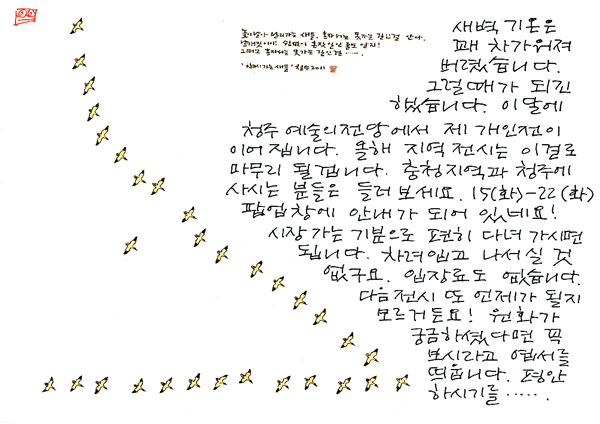 새벽 기온은
꽤 차가워져
버렸습니다.
그럴때가 되긴
했습니다. 이달에
청주 예술의전당에서 제 개인전이
이어집니다. 올해 지역전시는 이걸로
마무리 될겁니다. 충청지역과 청주에
사시는 분들은 들러보세요. 15(화)-22(화)
팝업창에 안내가 되어 있네요!
시장가는 기분으로 편히 다녀 가시면
됩니다. 차려입고 나서실 것
없구요. 입장료도 없습니다.
다음전시 또 언제가 될지
모르거든요! 원화가
궁금하셨다면 꼭
보시라고 엽서를
띄웁니다. 평안
하시기를·····.